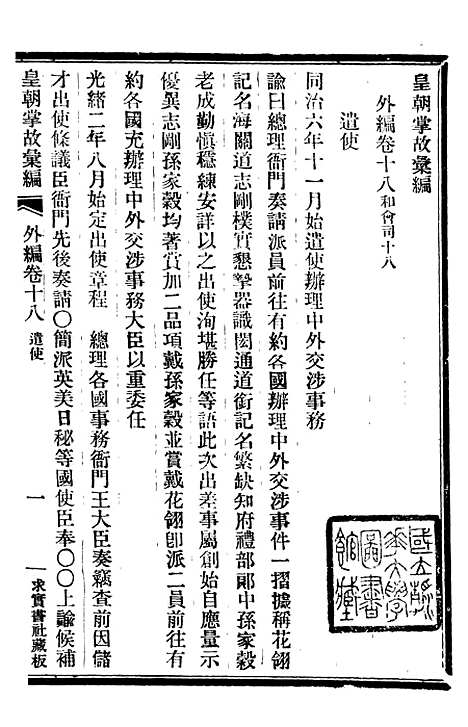 皇朝掌故彙編
外編卷十八和會司十八
遣使
同治六年十一月始遣使辦理中外交涉事務
諭曰總理衙門奏請派員前往有約各國辦理中外交涉事件一摺據稱花翎
記名海關道志剛樸實懇摯器識閎通道銜記名繁缺知府禮部郎中孫家穀
老成勤慎穩練安詳以之出使洵堪勝任等語此次出差事屬創始自應量示
優異志剛孫家穀均著賞加二品頂戴孫家穀並賞戴花翎卽派二員前往有
約各國充辦理中外交涉事務大臣以重委任
光緒二年八月始定出使章程　總理各國事務衙門王大臣奏竊查前因儲
才出使條議臣衙門先後奏請〇簡派英美日秘等國使臣奉〇〇上諭候補
皇朝掌故彙編
外編卷十八　遣使
一
求實書社藏板
國立燕京大學圖書館藏